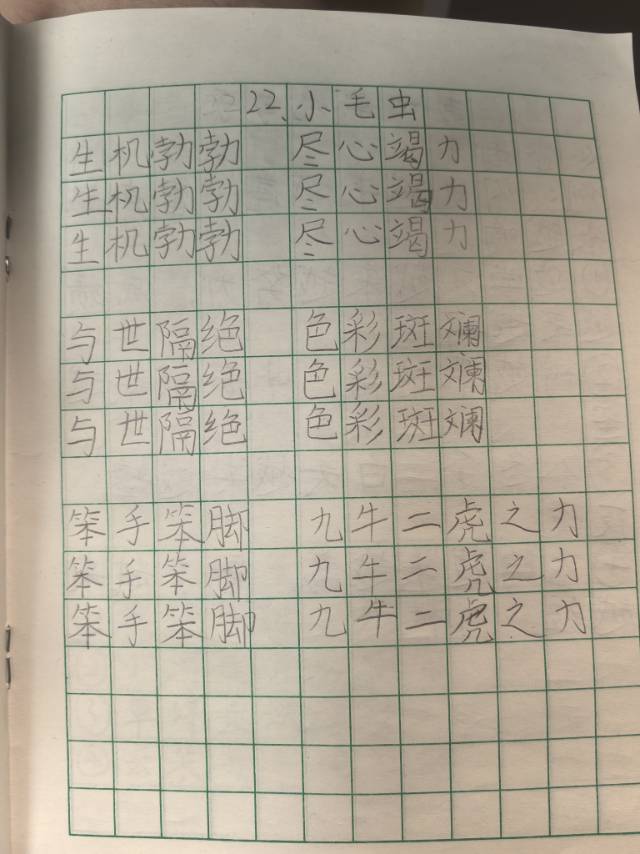 22、小毛虫
生机勃勃 尽心竭力
生机勃勃 尽心竭力
生机勃勃 尽心竭力
与世隔绝 色彩斑斓
与世隔绝 色彩斑斓
与世隔绝 色彩斑斓
笨手笨脚 九牛二虎之力
笨手笨脚 九牛二虎之力
笨手笨脚 九牛二虎之力